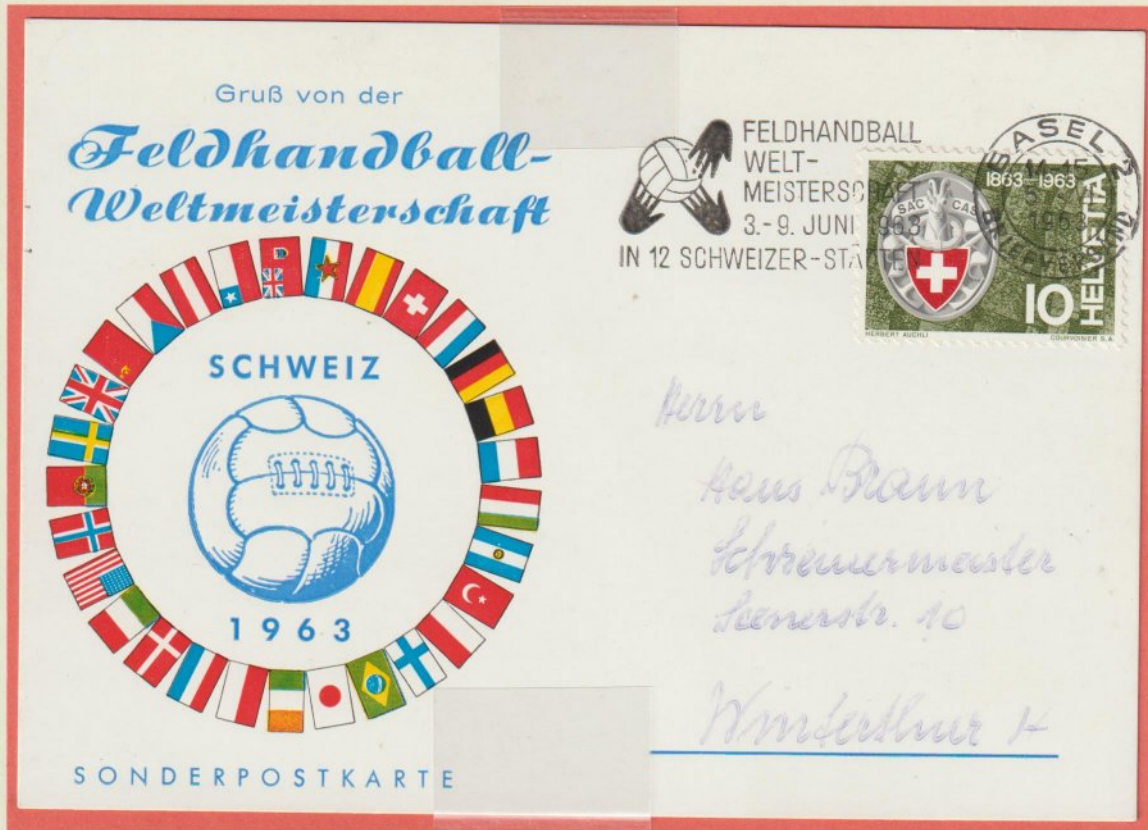 Gruß von der
Feldhandball-
Weltmeisterschaft
SCHWEIZ
1963
SONDERPOSTKARTE
FELDHANDBALL
WELT-
MEISTERSCHAFT
3.-9. JUNI 1963
IN 12 SCHWEIZER-STÄDTEN
BASEL 2
1963
BRIEFVERSAND
1863-1963
SAC CAS
10
HELVETIA
HERBERT AUCHLI
COURVOISIER S.A.
Herrn
Hans Braun
Schreinermeister
Seenerstr. 10
Winterthur